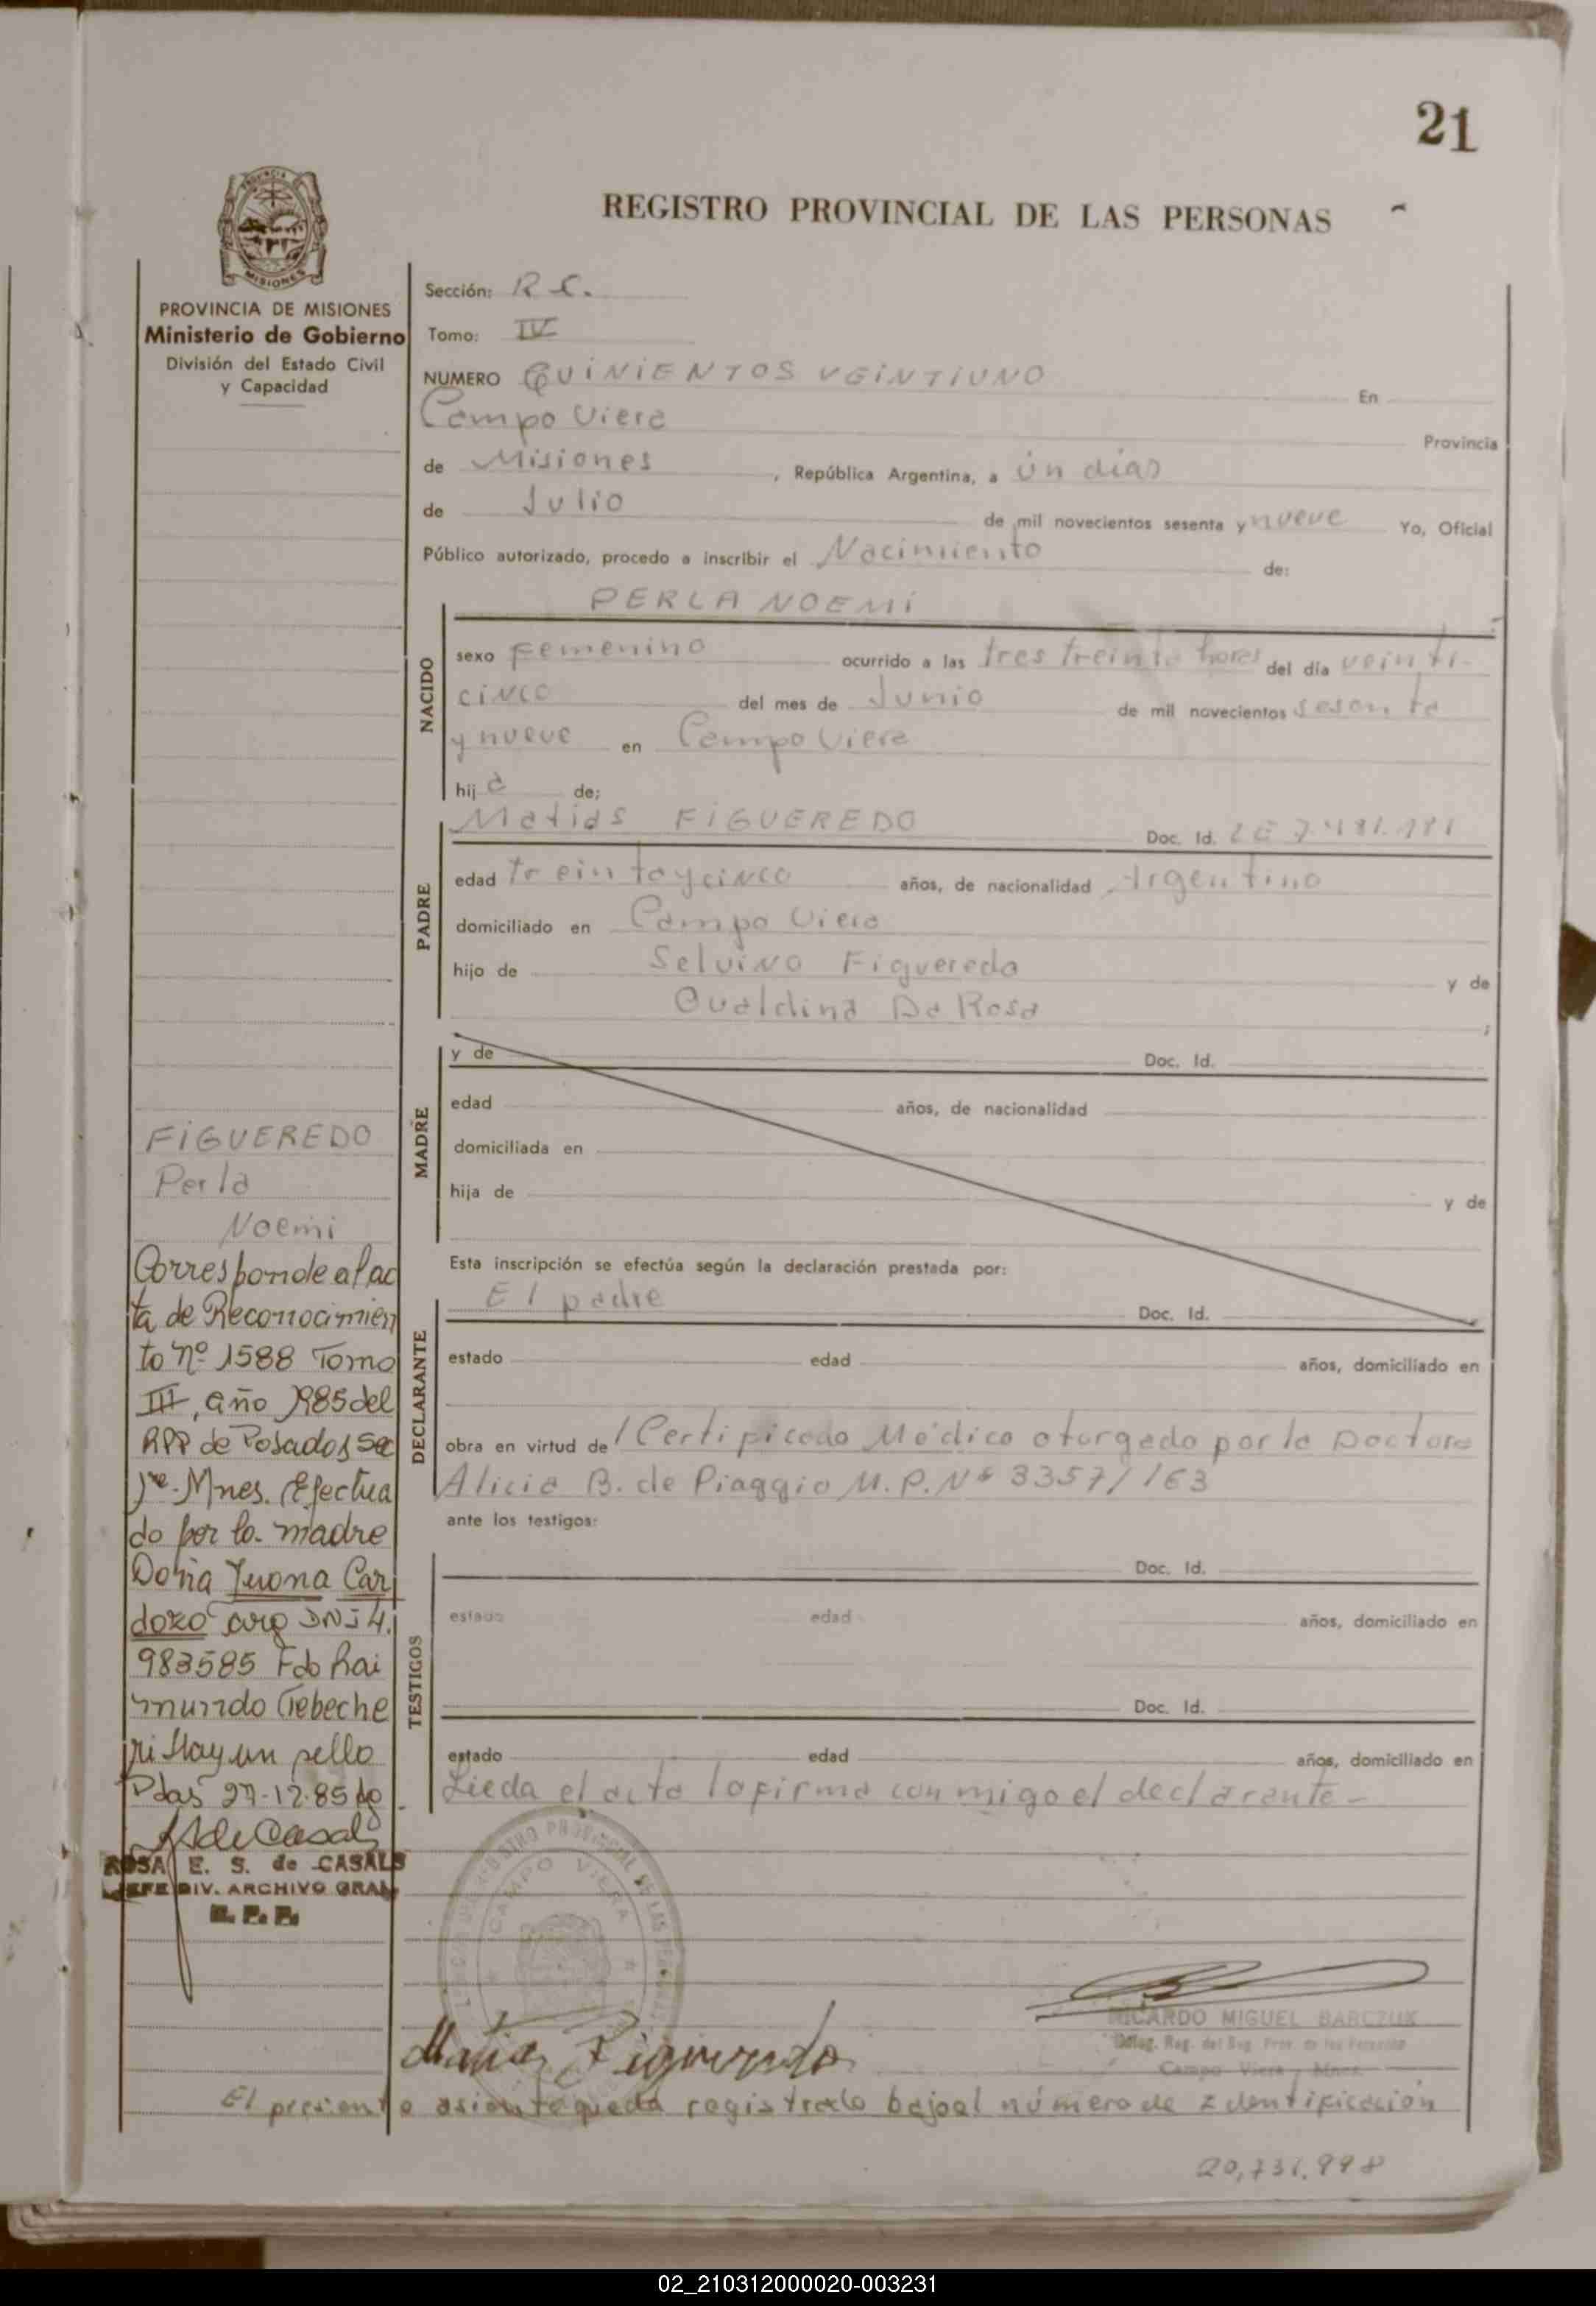 21
REGISTRO PROVINCIAL DE LAS PERSONAS
PROVINCIA DE MISIONES
MISIONES
PROVINCIA DE MISIONES
Ministerio de Gobierno
División del Estado Civil
y Capacidad
Sección: R C.
Tomo: IV
NUMERO QUINIENTOS VEINTIUNO En
Campo Viera Provincia
de Misiones, República Argentina, a ún días
de Julio de mil novecientos sesenta y nueve Yo, Oficial
Público autorizado, procedo a inscribir el Nacimiento de:
PERLA NOEMI
NACIDO
sexo Femenino ocurrido a las tres treinta horas del día veinti-
cinco del mes de Junio de mil novecientos sesenta
y nueve en Campo Viera
hija de;
PADRE
Matias FIGUEREDO Doc. Id. LE 7.481.181
edad treinta y cinco años, de nacionalidad Argentino
domiciliado en Campo Viera
hijo de Selvino Figueredo y de
Oualdina Da Rosa ;
MADRE
y de Doc. Id.
edad años, de nacionalidad
domiciliada en
hija de y de
Esta inscripción se efectúa según la declaración prestada por:
DECLARANTE
El padre Doc. Id.
estado edad años, domiciliado en
obra en virtud de l Certificado Médico otorgado por la Doctora
Alicia B. de Piaggio M.P. Nº 3357/163
ante los testigos:
TESTIGOS
Doc. Id.
estado edad años, domiciliado en
Doc. Id.
estado edad años, domiciliado en
Lieda el acta la firma conmigo el declarante-
FIGUEREDO
Perla
Noemi
Corresponde al ac
ta de Reconocimien
to nº 1588 Tomo
III, año 1985 del
RPP de Posadas Sec
1ra. Mnes. Efectua
do por la madre
Doña Juana Car
dozo arg DNI 4.
983585 Fdo Rai
mundo Gebeche
ri Hay un sello
Pdas 27-12-85
ROSA E. S. de CASALS
JEFE DIV. ARCHIVO GRAL
R. P. P.
CAMPO VIERA
Matias Figueredo
RICARDO MIGUEL BARCZUK
Deleg. Reg. del Reg. Prov. de las Personas
Campo Viera, Mnes.
El presente asiento queda registrado bajo el número de Identificación
20,731.998
02_210312000020-003231